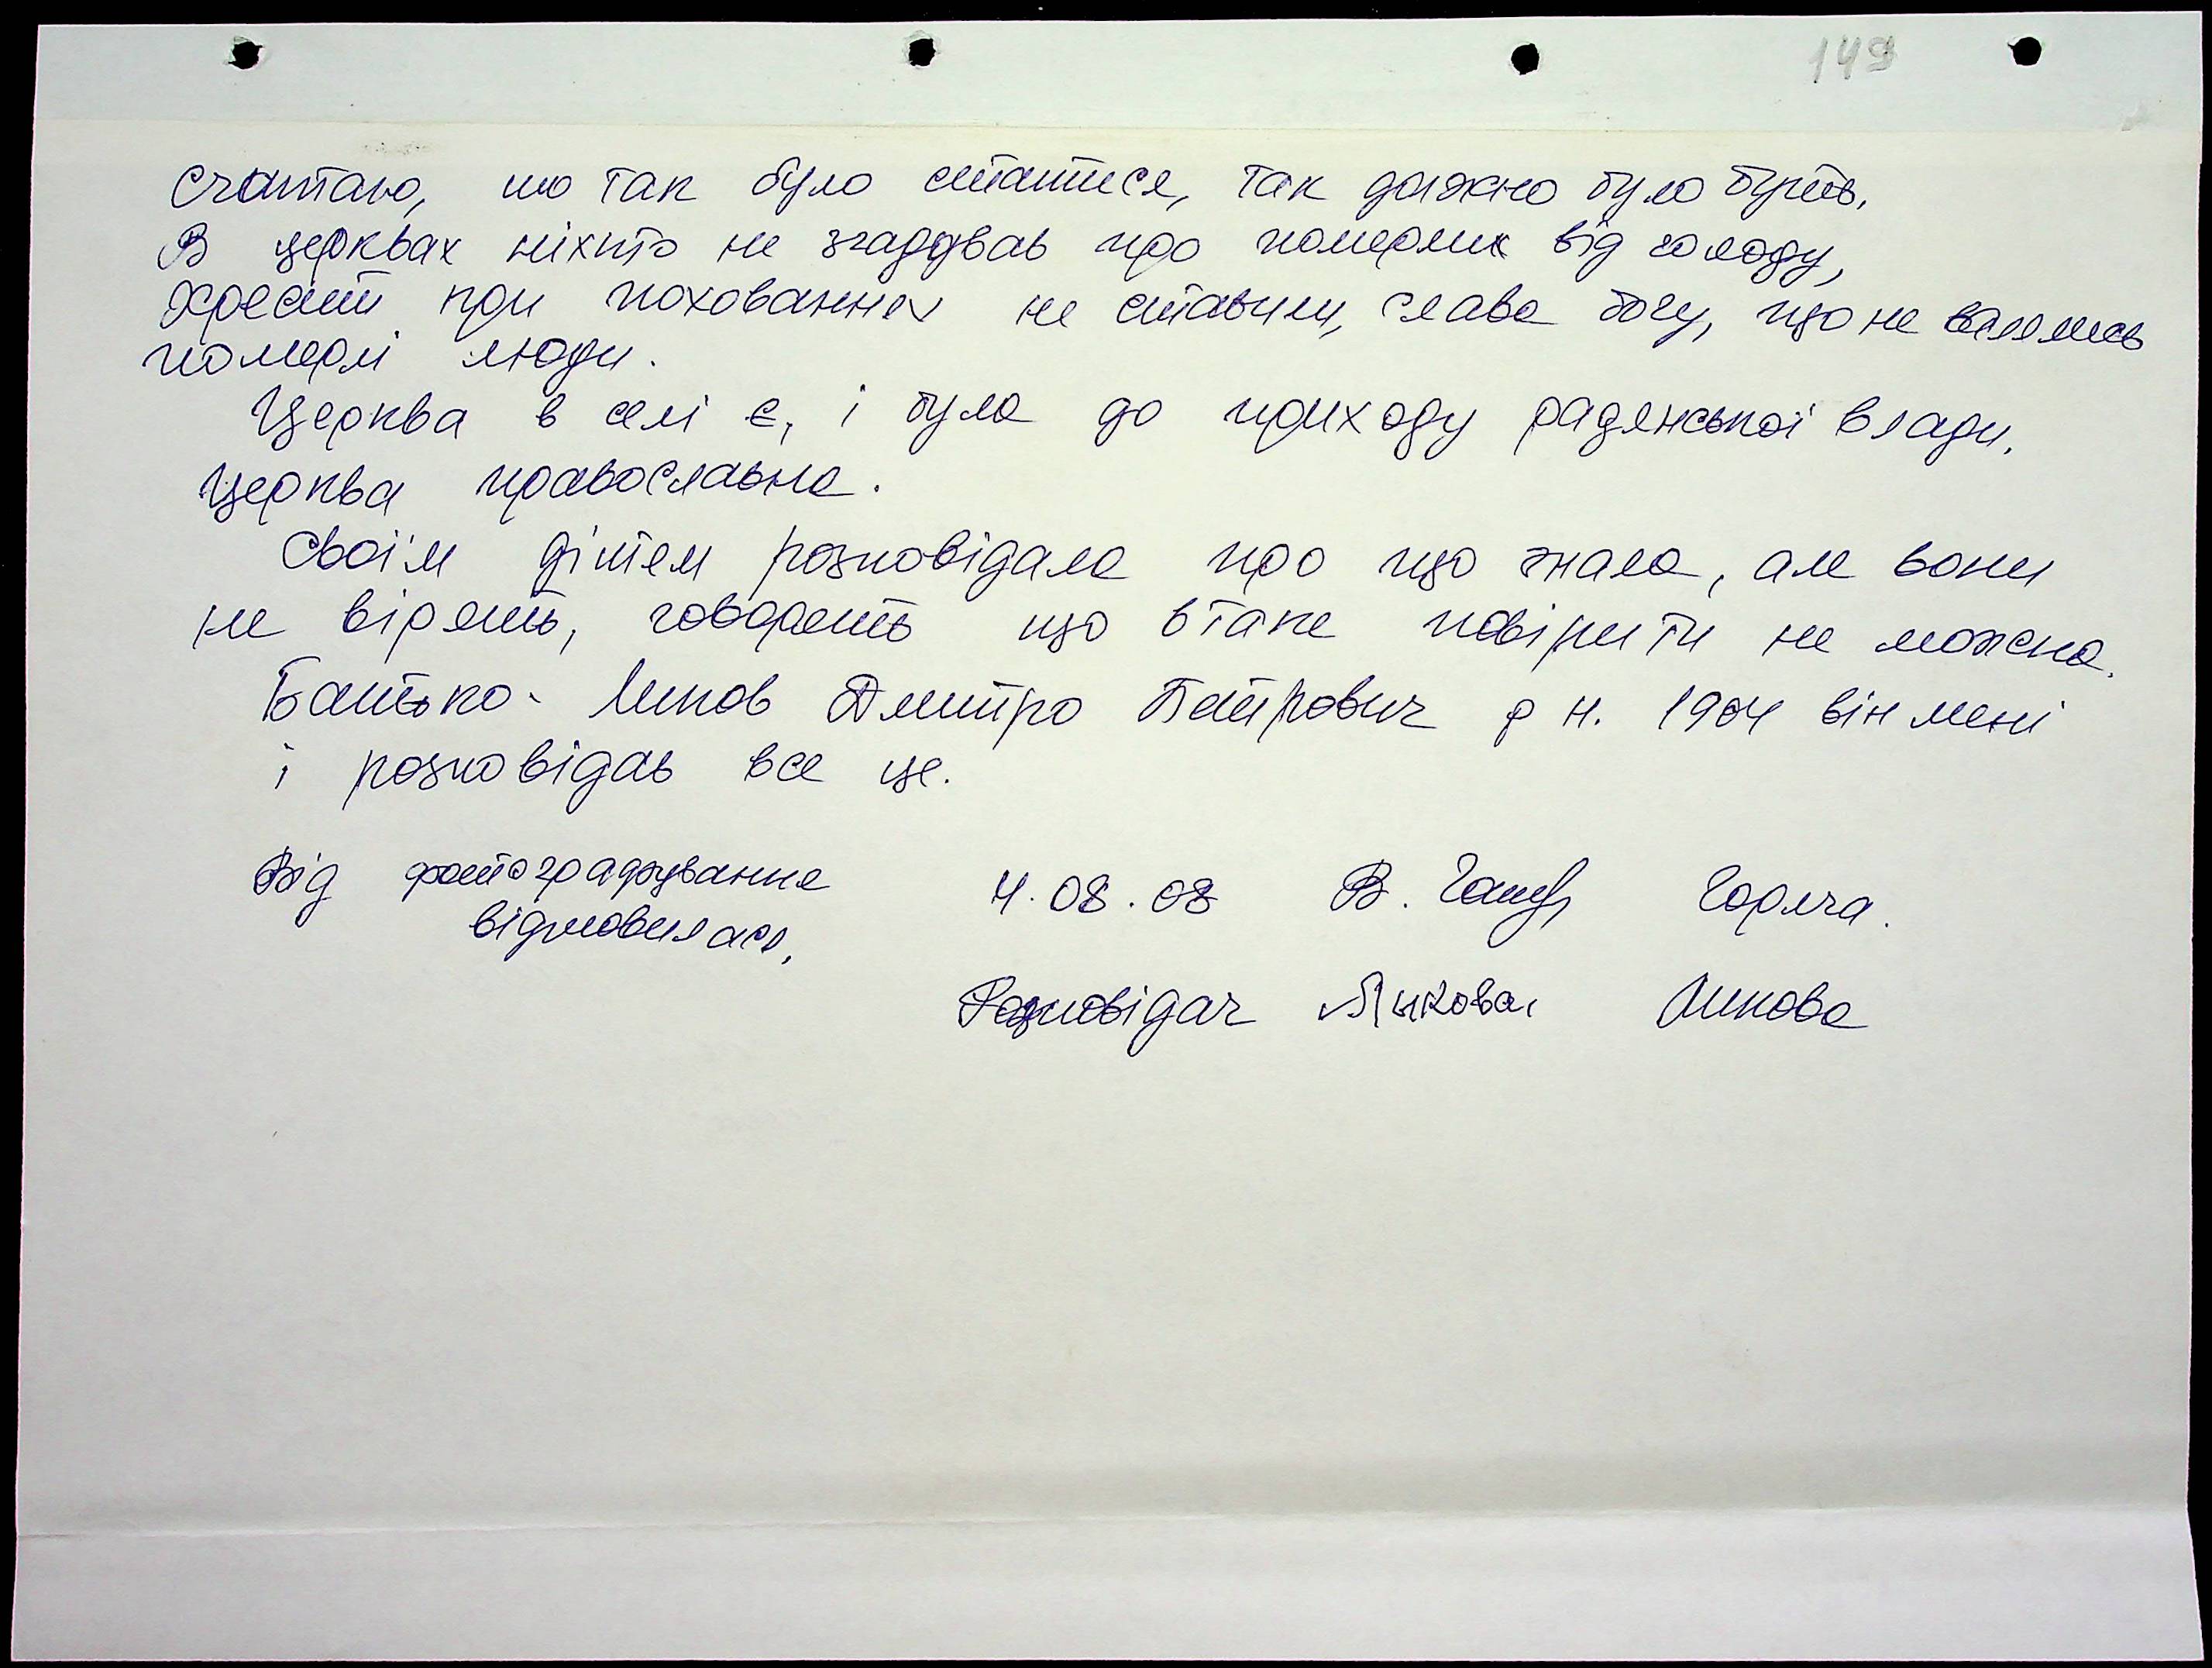 149
Считаю, шо так було статися, так должно було буть.
В церквах ніхто не згадував про померлих від голоду,
хрести при похованнях не ставили, слава богу, що не валялись
померлі люди.
Церква в селі є, і була до приходу радянської влади.
Церква православна.
Своїм дітям розповідала про що знала, але вони
не вірять, говорять що в таке повірити не можна.
Батько - Ликов Дмитро Петрович р н. 1904 він мені
і розповідав все це.
Від фотографування
відмовилась,
4.08.08 В. Горяча.
Розповідач Лыкова Ликова